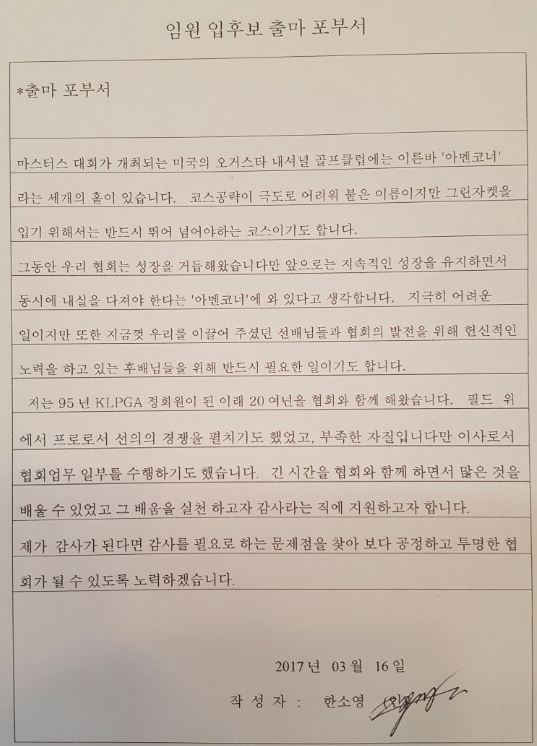 임원 입후보 출마 포부서
*출마 포부서
마스터스 대회가 개최되는 미국의 오거스타 내셔널 골프클럽에는 이른바 '아멘코너'
라는 세개의 홀이 있습니다. 코스공략이 극도로 어려워 붙은 이름이지만 그린자켓을
입기 위해서는 반드시 뛰어 넘어야하는 코스이기도 합니다.
그동안 우리 협회는 성장을 거듭해왔습니다만 앞으로는 지속적인 성장을 유지하면서
동시에 내실을 다져야 한다는 '아멘코너'에 와 있다고 생각합니다. 지극히 어려운
일이지만 또한 지금껏 우리를 이끌어 주셨던 선배님들과 협회의 발전을 위해 헌신적인
노력을 하고 있는 후배님들을 위해 반드시 필요한 일이기도 합니다.
저는 95년 KLPGA 정회원이 된 이래 20여년을 협회와 함께 해왔습니다. 필드 위
에서 프로로서 선의의 경쟁을 펼치기도 했었고, 부족한 자질입니다만 이사로서
협회업무 일부를 수행하기도 했습니다. 긴 시간을 협회와 함께 하면서 많은 것을
배울 수 있었고 그 배움을 실천 하고자 감사라는 직에 지원하고자 합니다.
제가 감사가 된다면 감사를 필요로 하는 문제점을 찾아 보다 공정하고 투명한 협
회가 될 수 있도록 노력하겠습니다.
2017년 03월 16일
작 성 자 : 한소영